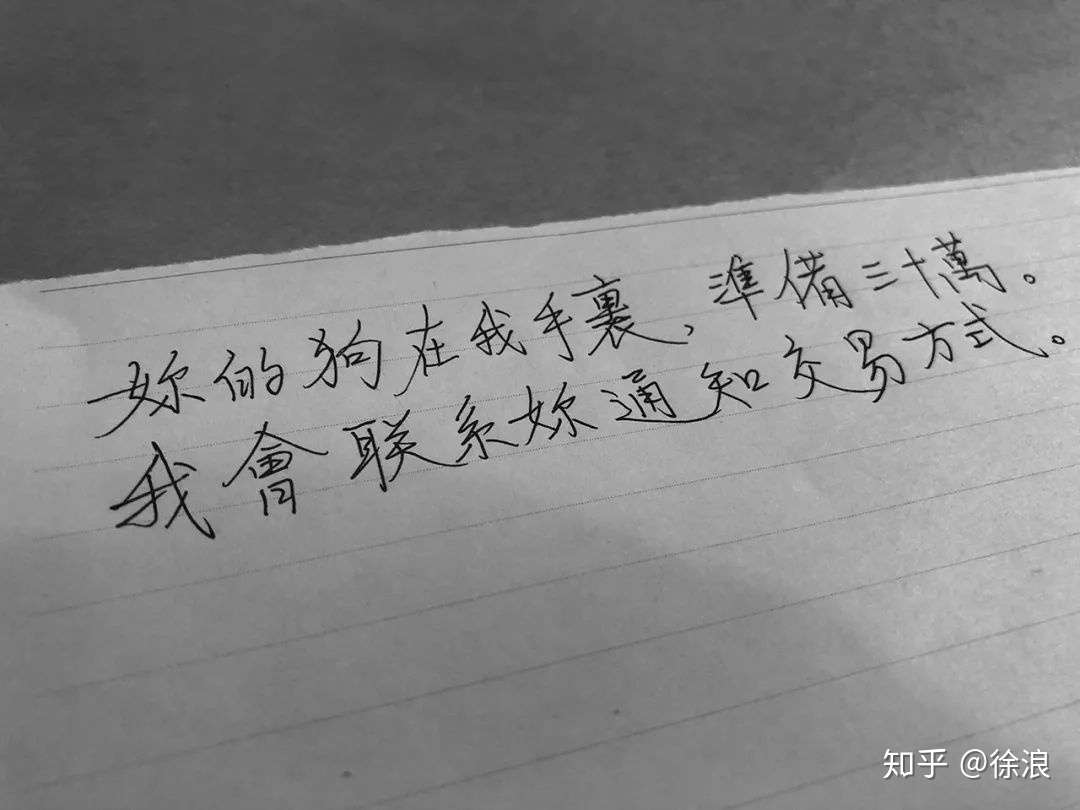 妳的狗在我手裏，準備三十萬。
我會联系妳通知交易方式。
知乎 @徐浪